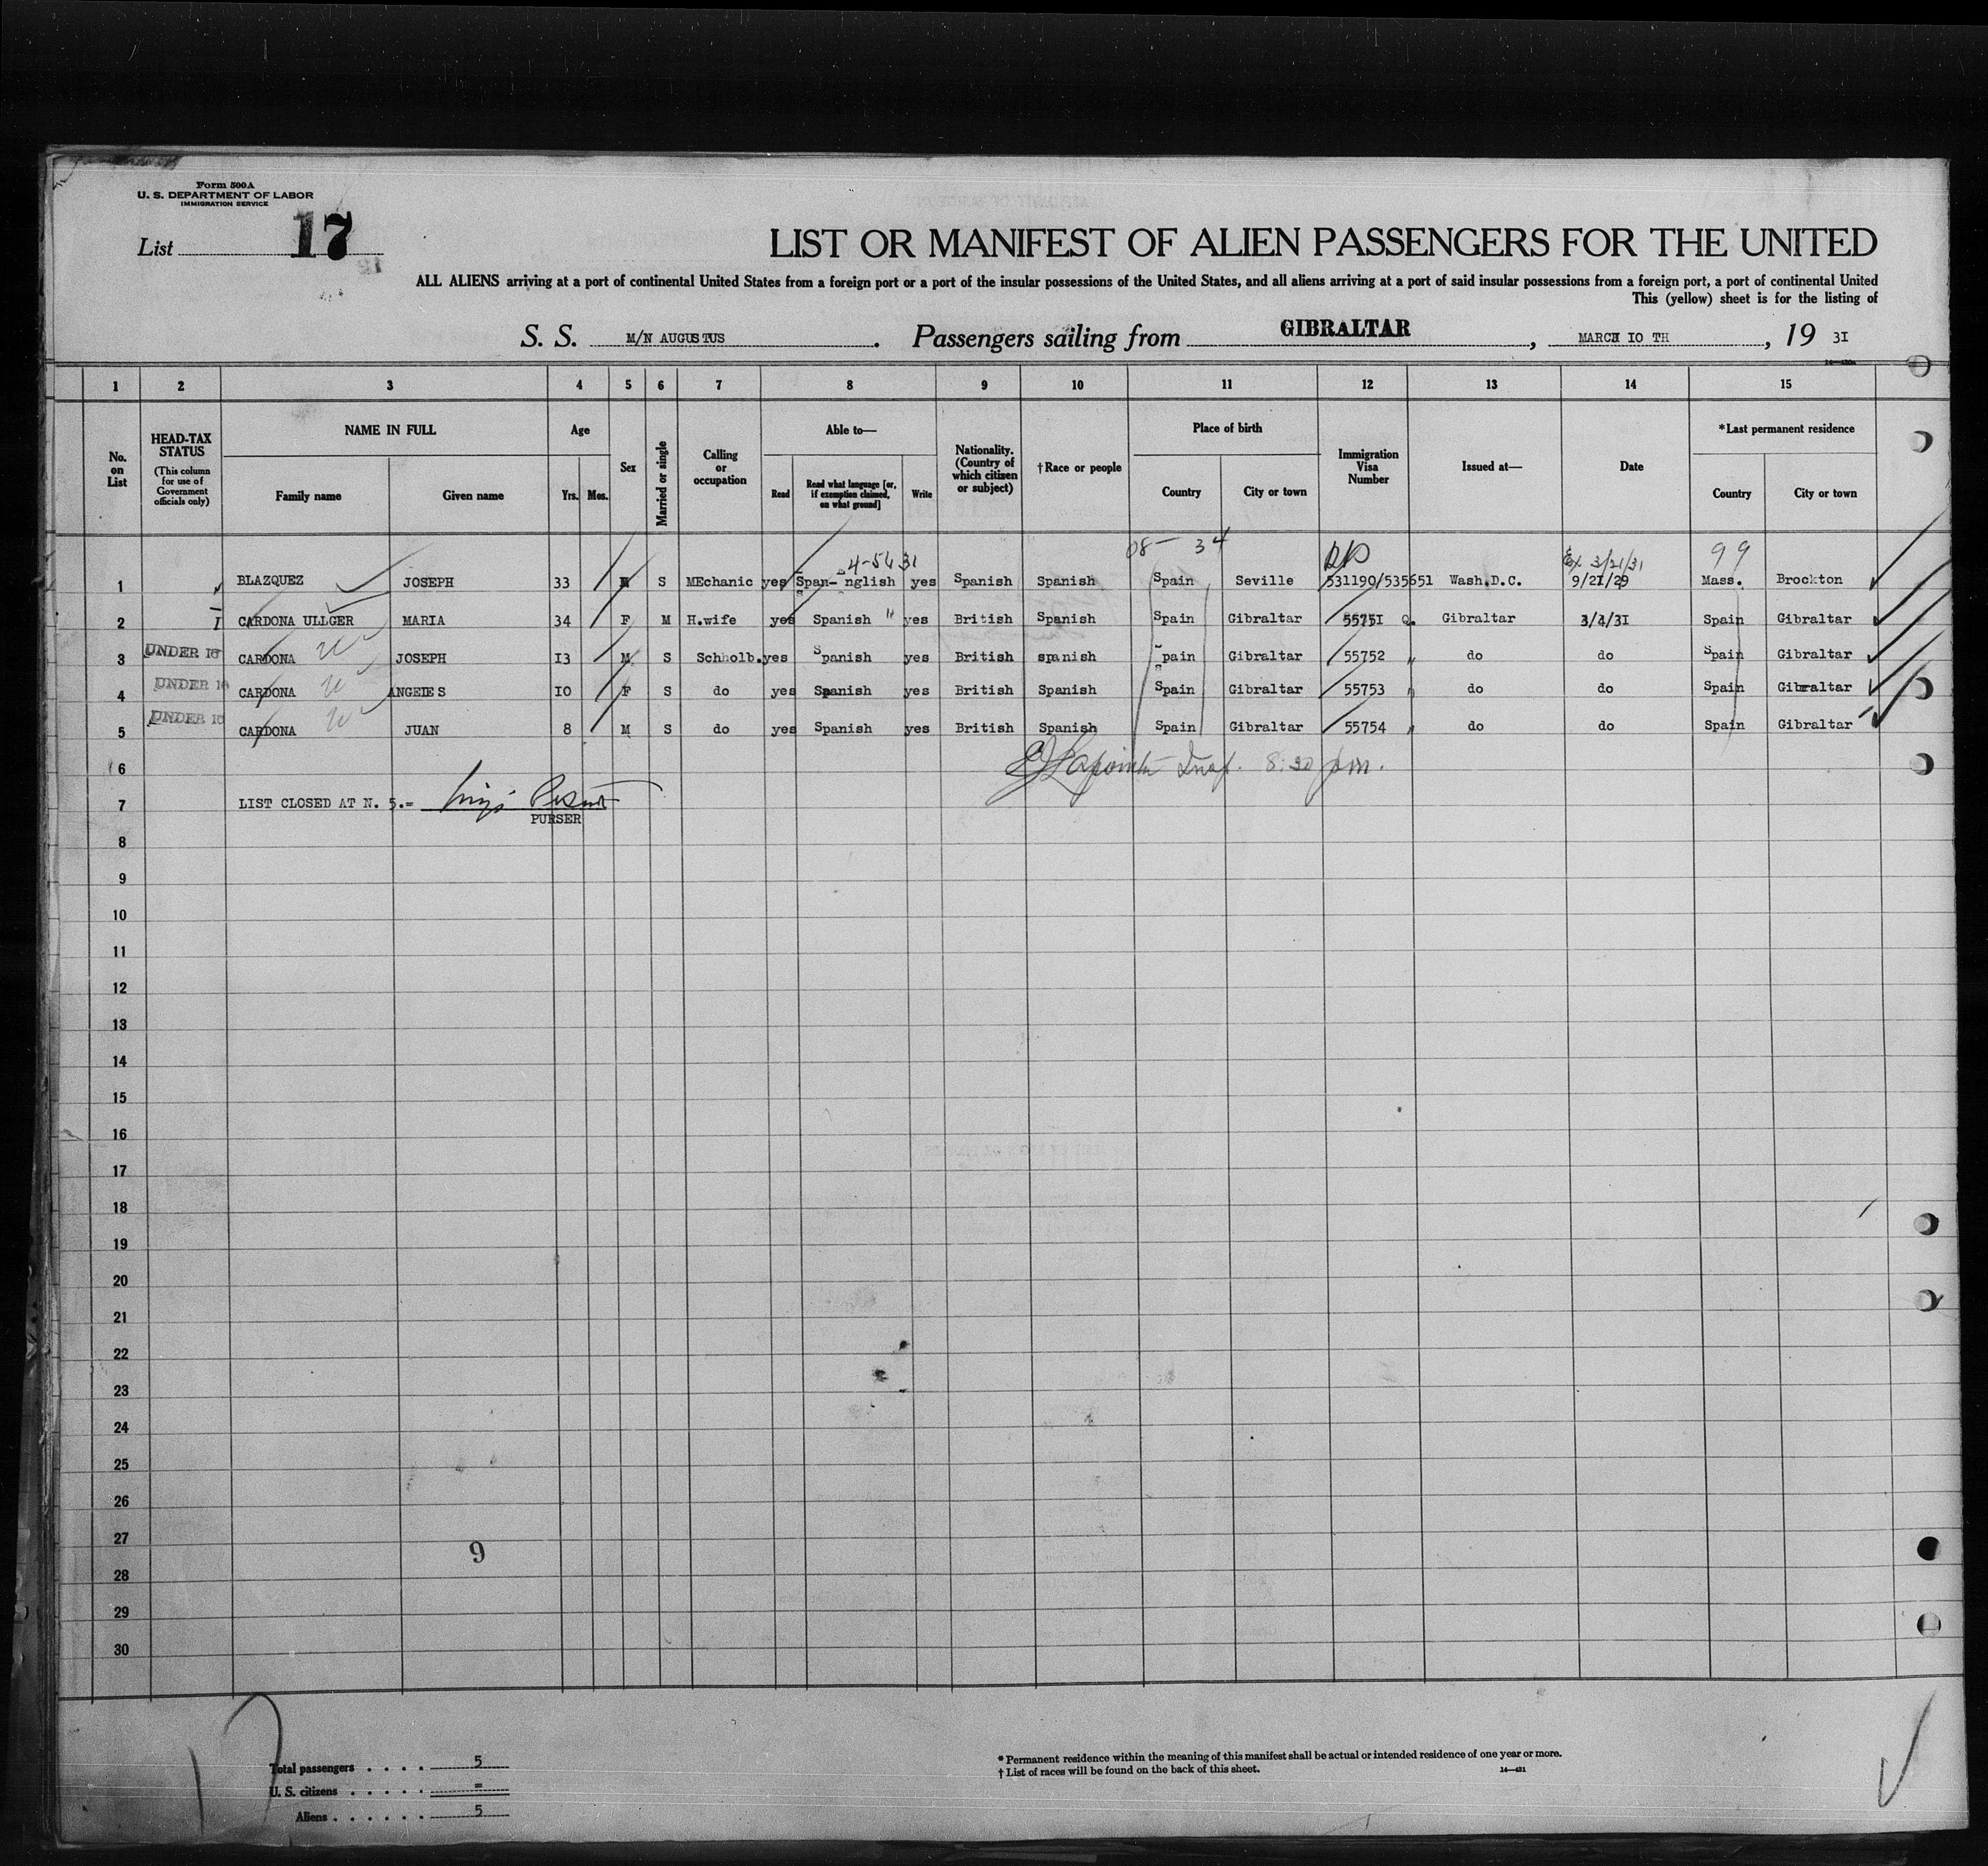 Form 500A
U. S. DEPARTMENT OF LABOR
IMMIGRATION SERVICE
List 17
LIST OR MANIFEST OF ALIEN PASSENGERS FOR THE UNITED
ALL ALIENS arriving at a port of continental United States from a foreign port or a port of the insular possessions of the United States, and all aliens arriving at a port of said insular possessions from a foreign port, a port of continental United
This (yellow) sheet is for the listing of
S. S. M/N AUGUSTUS. Passengers sailing from GIBRALTAR, MARCH IO TH, 19 3I
1 2 3 4 5 6 7 8 9 10 11 12 13 14 15
No. on List
HEAD-TAX STATUS (This column for use of Government officials only)
NAME IN FULL
Family name Given name
Age
Yrs. Mos.
Sex
Married or single
Calling or occupation
Able to—
Read Read what language [or, if exemption claimed, on what ground] Write
Nationality. (Country of which citizen or subject)
†Race or people
Place of birth
Country City or town
Immigration Visa Number
Issued at—
Date
*Last permanent residence
Country City or town
4-54 31 08- 34 Ex 3/21/31 99
1 BLAZQUEZ JOSEPH 33 M S MEchanic yes Span- nglish yes Spanish Spanish Spain Seville 531190/535651 Wash.D.C. 9/21/29 Mass. Brockton
2 I CARDONA ULLGER MARIA 34 F M H.wife yes Spanish " yes British Spanish Spain Gibraltar 5575I Q. Gibraltar 3/4/3I Spain Gibraltar
3 UNDER 16 CARDONA JOSEPH I3 M S Schholb. yes Spanish yes British spanish Spain Gibraltar 55752 " do do Spain Gibraltar
4 UNDER 16 CARDONA ANGELES IO F S do yes Spanish yes British Spanish Spain Gibraltar 55753 " do do Spain Gibraltar
5 UNDER 16 CARDONA JUAN 8 M S do yes Spanish yes British Spanish Spain Gibraltar 55754 " do do Spain Gibraltar
6 Lapointe Insp. 8:30 pm.
7 LIST CLOSED AT N. 5.=
PURSER
8
9
10
11
12
13
14
15
16
17
18
19
20
21
22
23
24
25
26
27
9
28
29
30
17
Total passengers . . . . 5
U. S. citizens . . . . . =
Aliens . . . . . . 5
* Permanent residence within the meaning of this manifest shall be actual or intended residence of one year or more.
† List of races will be found on the back of this sheet.
14—431